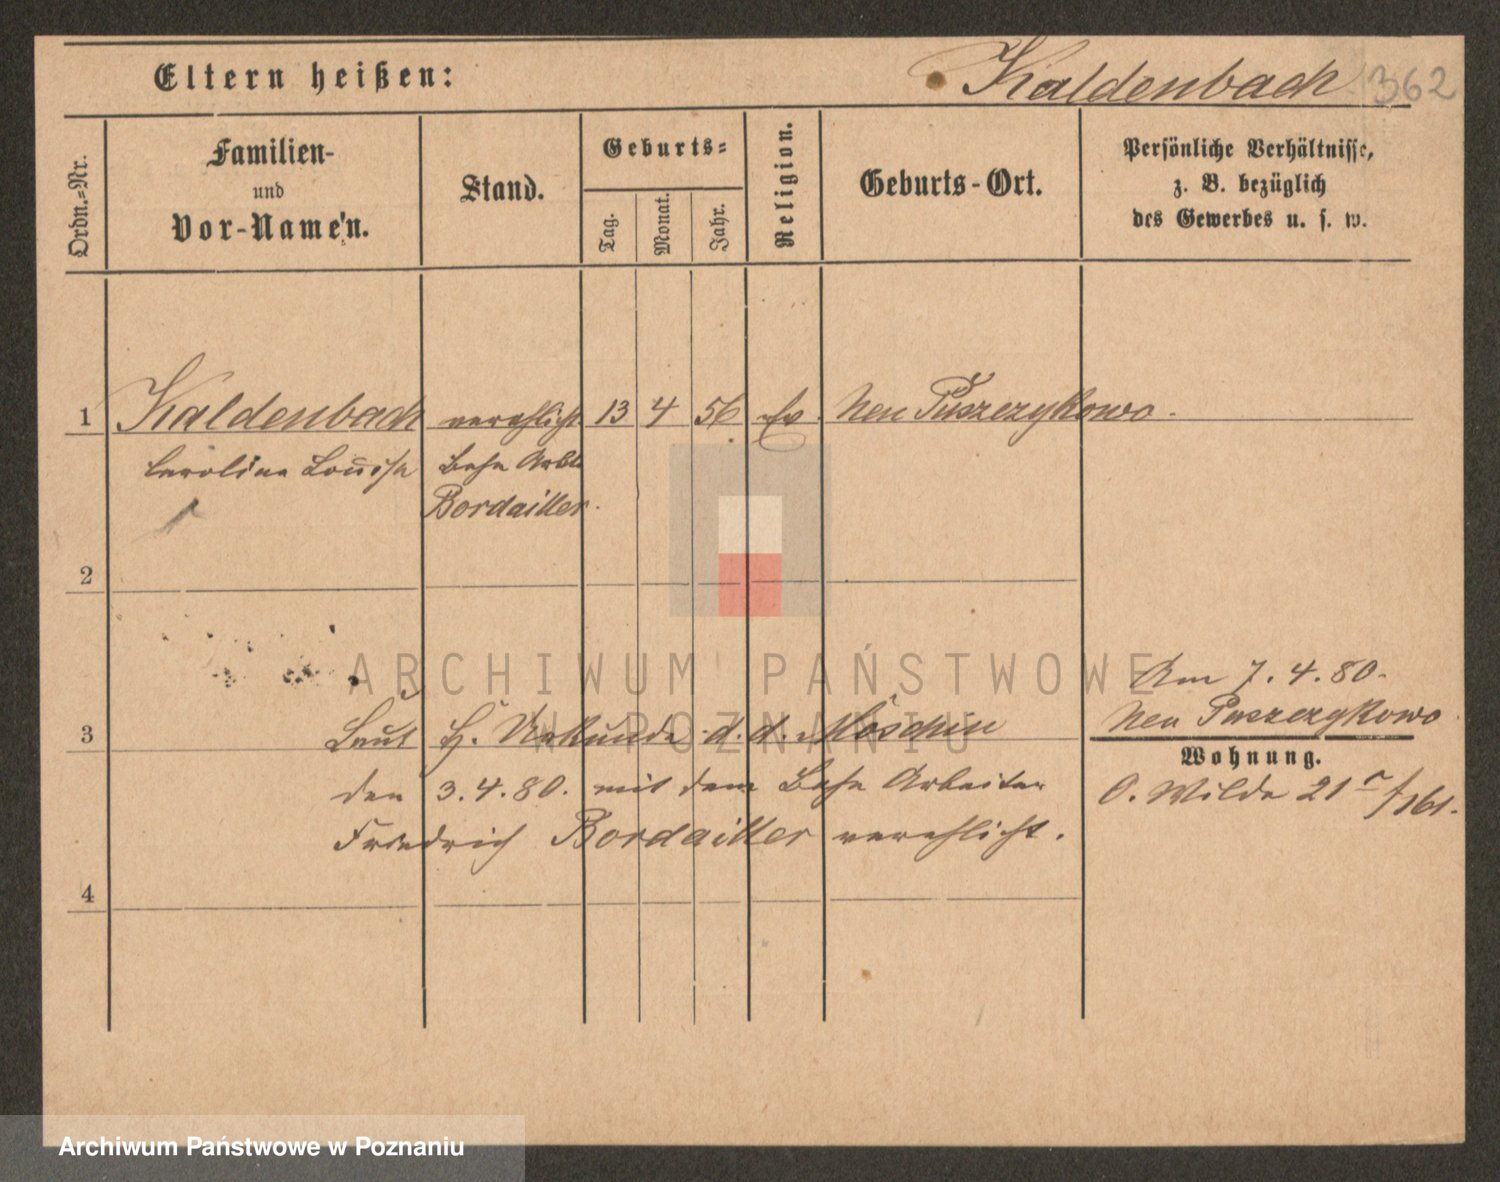 Eltern heißen:
Kaldenbach 362
Ordn.-Nr.
Familien-
und
Vor-Namen.
Stand.
Geburts-
Tag.
Monat.
Jahr.
Religion.
Geburts-Ort.
Persönliche Verhältnisse,
z. B. bezüglich
des Gewerbes u. s. w.
1 Kaldenbach verehlicht 13 4 56 Ev. Neu Puszczykowo.
Caroline Louise Bahn Arbt.
Bordailler.
2
ARCHIWUM PAŃSTWOWE
W POZNANIU
Am 7.4.80.
Neu Puszczykowo
3 Laut H. Urkunde d. d. Moschin
Wohnung.
den 3.4.80. mit dem Bahn Arbeiter
O. Wilda 21
Friedrich Bordailler verehlicht.
4
Archiwum Państwowe w Poznaniu